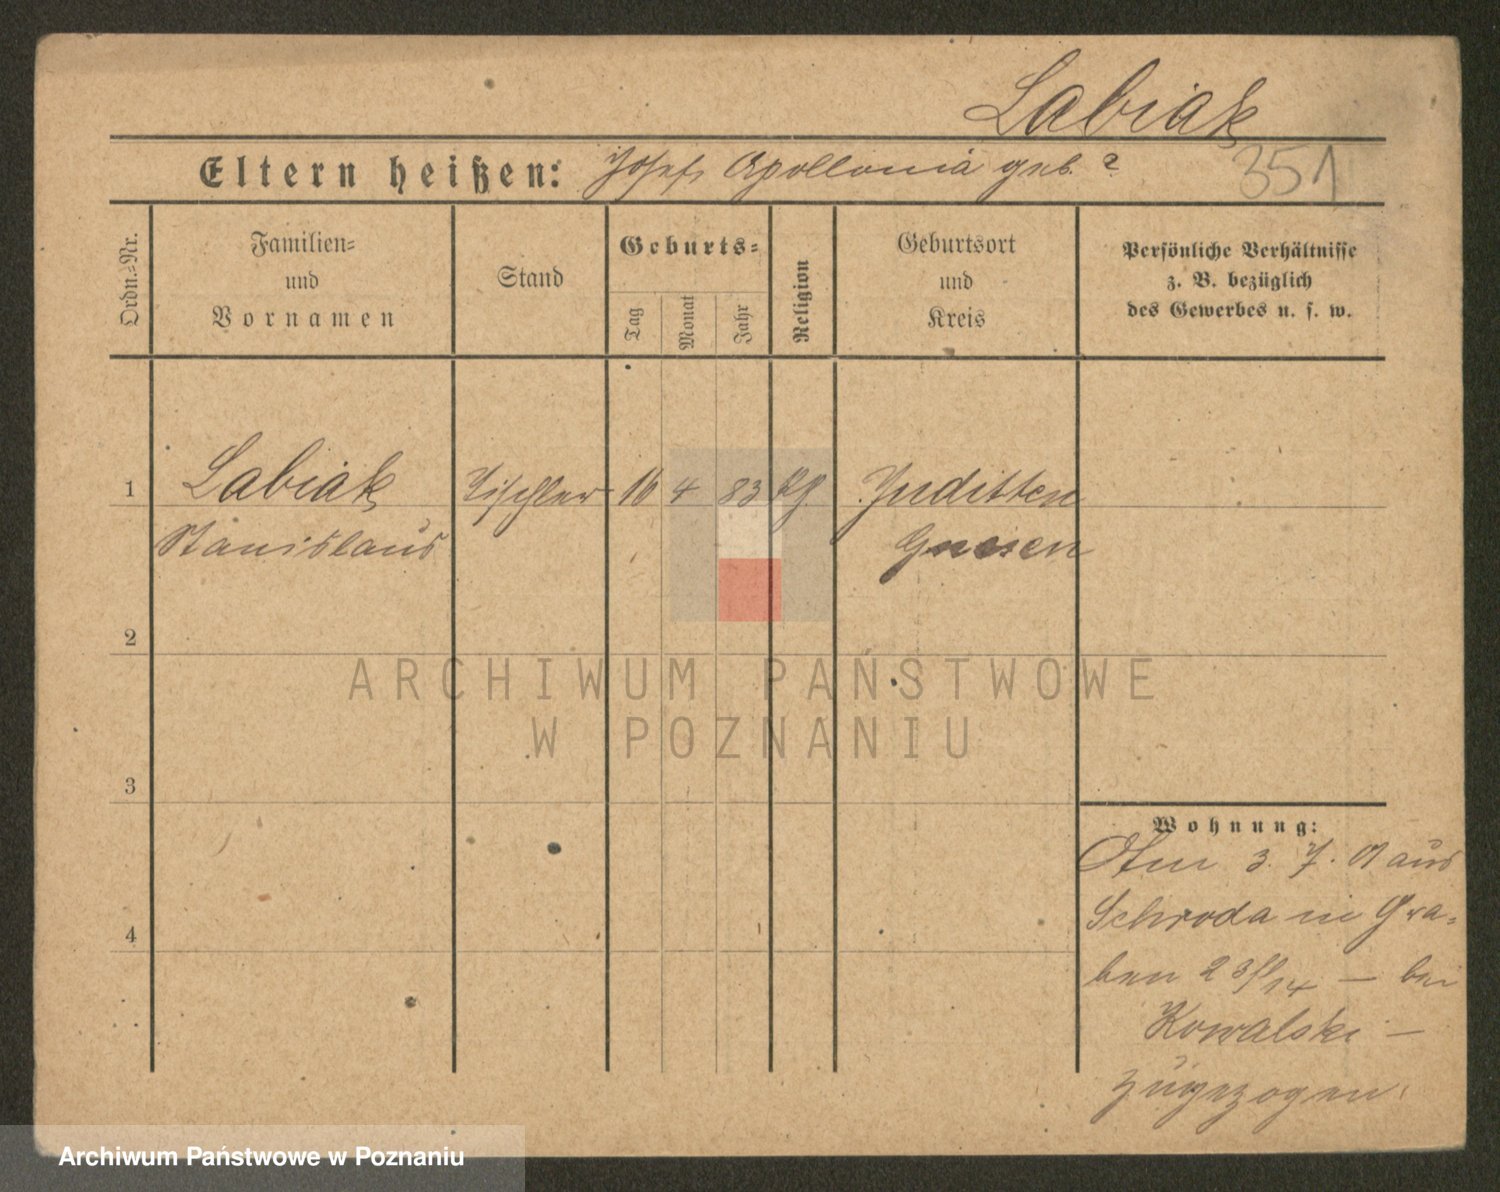 Labiak
Eltern heißen: Josef, Apollonia geb. ?
351
Ordn.-Nr.
Familien-
und
Vornamen
Stand
Geburts-
Tag
Monat
Jahr
Religion
Geburtsort
und
Kreis
Persönliche Verhältnisse
z. B. bezüglich
des Gewerbes u. s. w.
1 Labiak Tischler 16 4 83 Juditten
Stanislaus Gnesen
2
3
4
ARCHIWUM PAŃSTWOWE
W POZNANIU
Wohnung:
Am 3. 7. 01 aus
Schroda in Gra-
ben 23/14 — bei
Kowalski —
zugezogen.
Archiwum Państwowe w Poznaniu